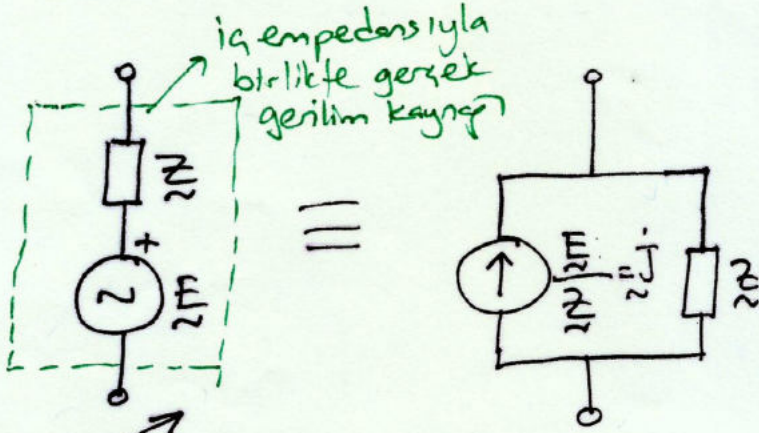 iç empedansıyla
birlikte gerçek
gerilim kaynağı
Z
+
E
≡
E/Z = J
Z